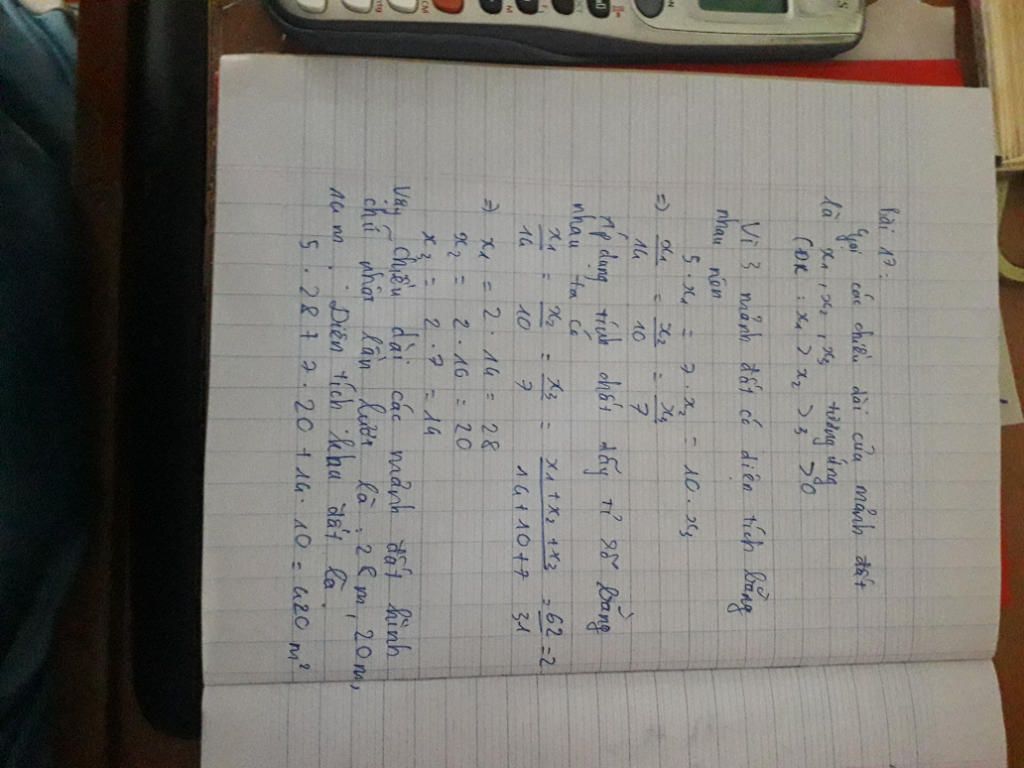 Bài 17:
Gọi các chiều dài của mảnh đất
là x1, x2, x3 tương ứng
(ĐK: x1 > x2 > x3 > 0
Vì 3 mảnh đất có diện tích bằng
nhau nên
5 . x1 = 7 . x2 = 10 . x3
=> x1/14 = x2/10 = x3/7
Áp dụng tính chất dãy tỉ số bằng
nhau ta có
x1/14 = x2/10 = x3/7 = x1+x2+x3/14+10+7 = 62/31 = 2
=> x1 = 2 . 14 = 28
x2 = 2 . 10 = 20
x3 = 2 . 7 = 14
Vậy chiều dài các mảnh đất hình
chữ nhật lần lượt là : 28 m, 20 m,
14 m . Diện tích khu đất là
5 . 28 + 7 . 20 + 14 . 10 = 420 m²